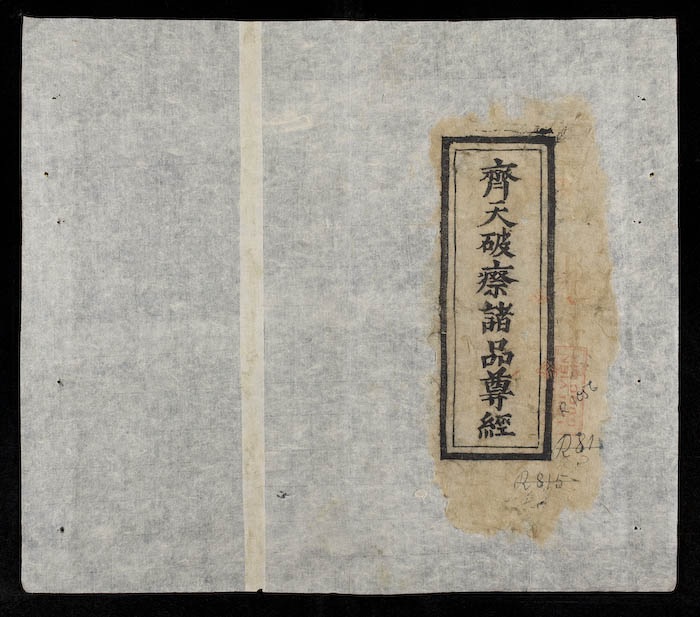 齊天破瘵諸品尊經
R 815